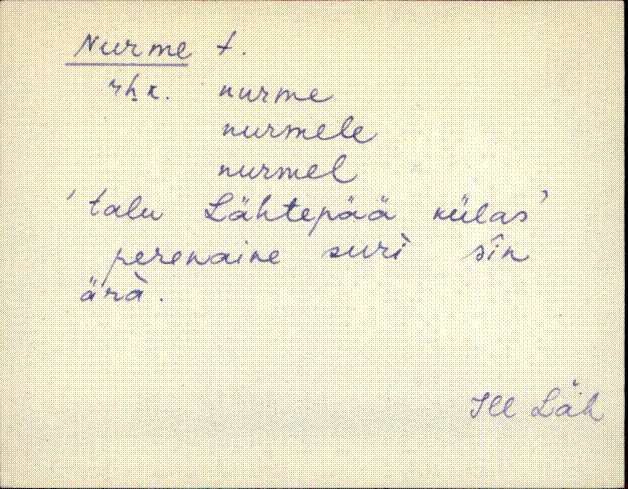 Nurme t.
rhk. nurme
nurmele
nurmel
'talu Lähtepää külas'
perenaine suri̇̀ sîn
ärà.
Jll Läh